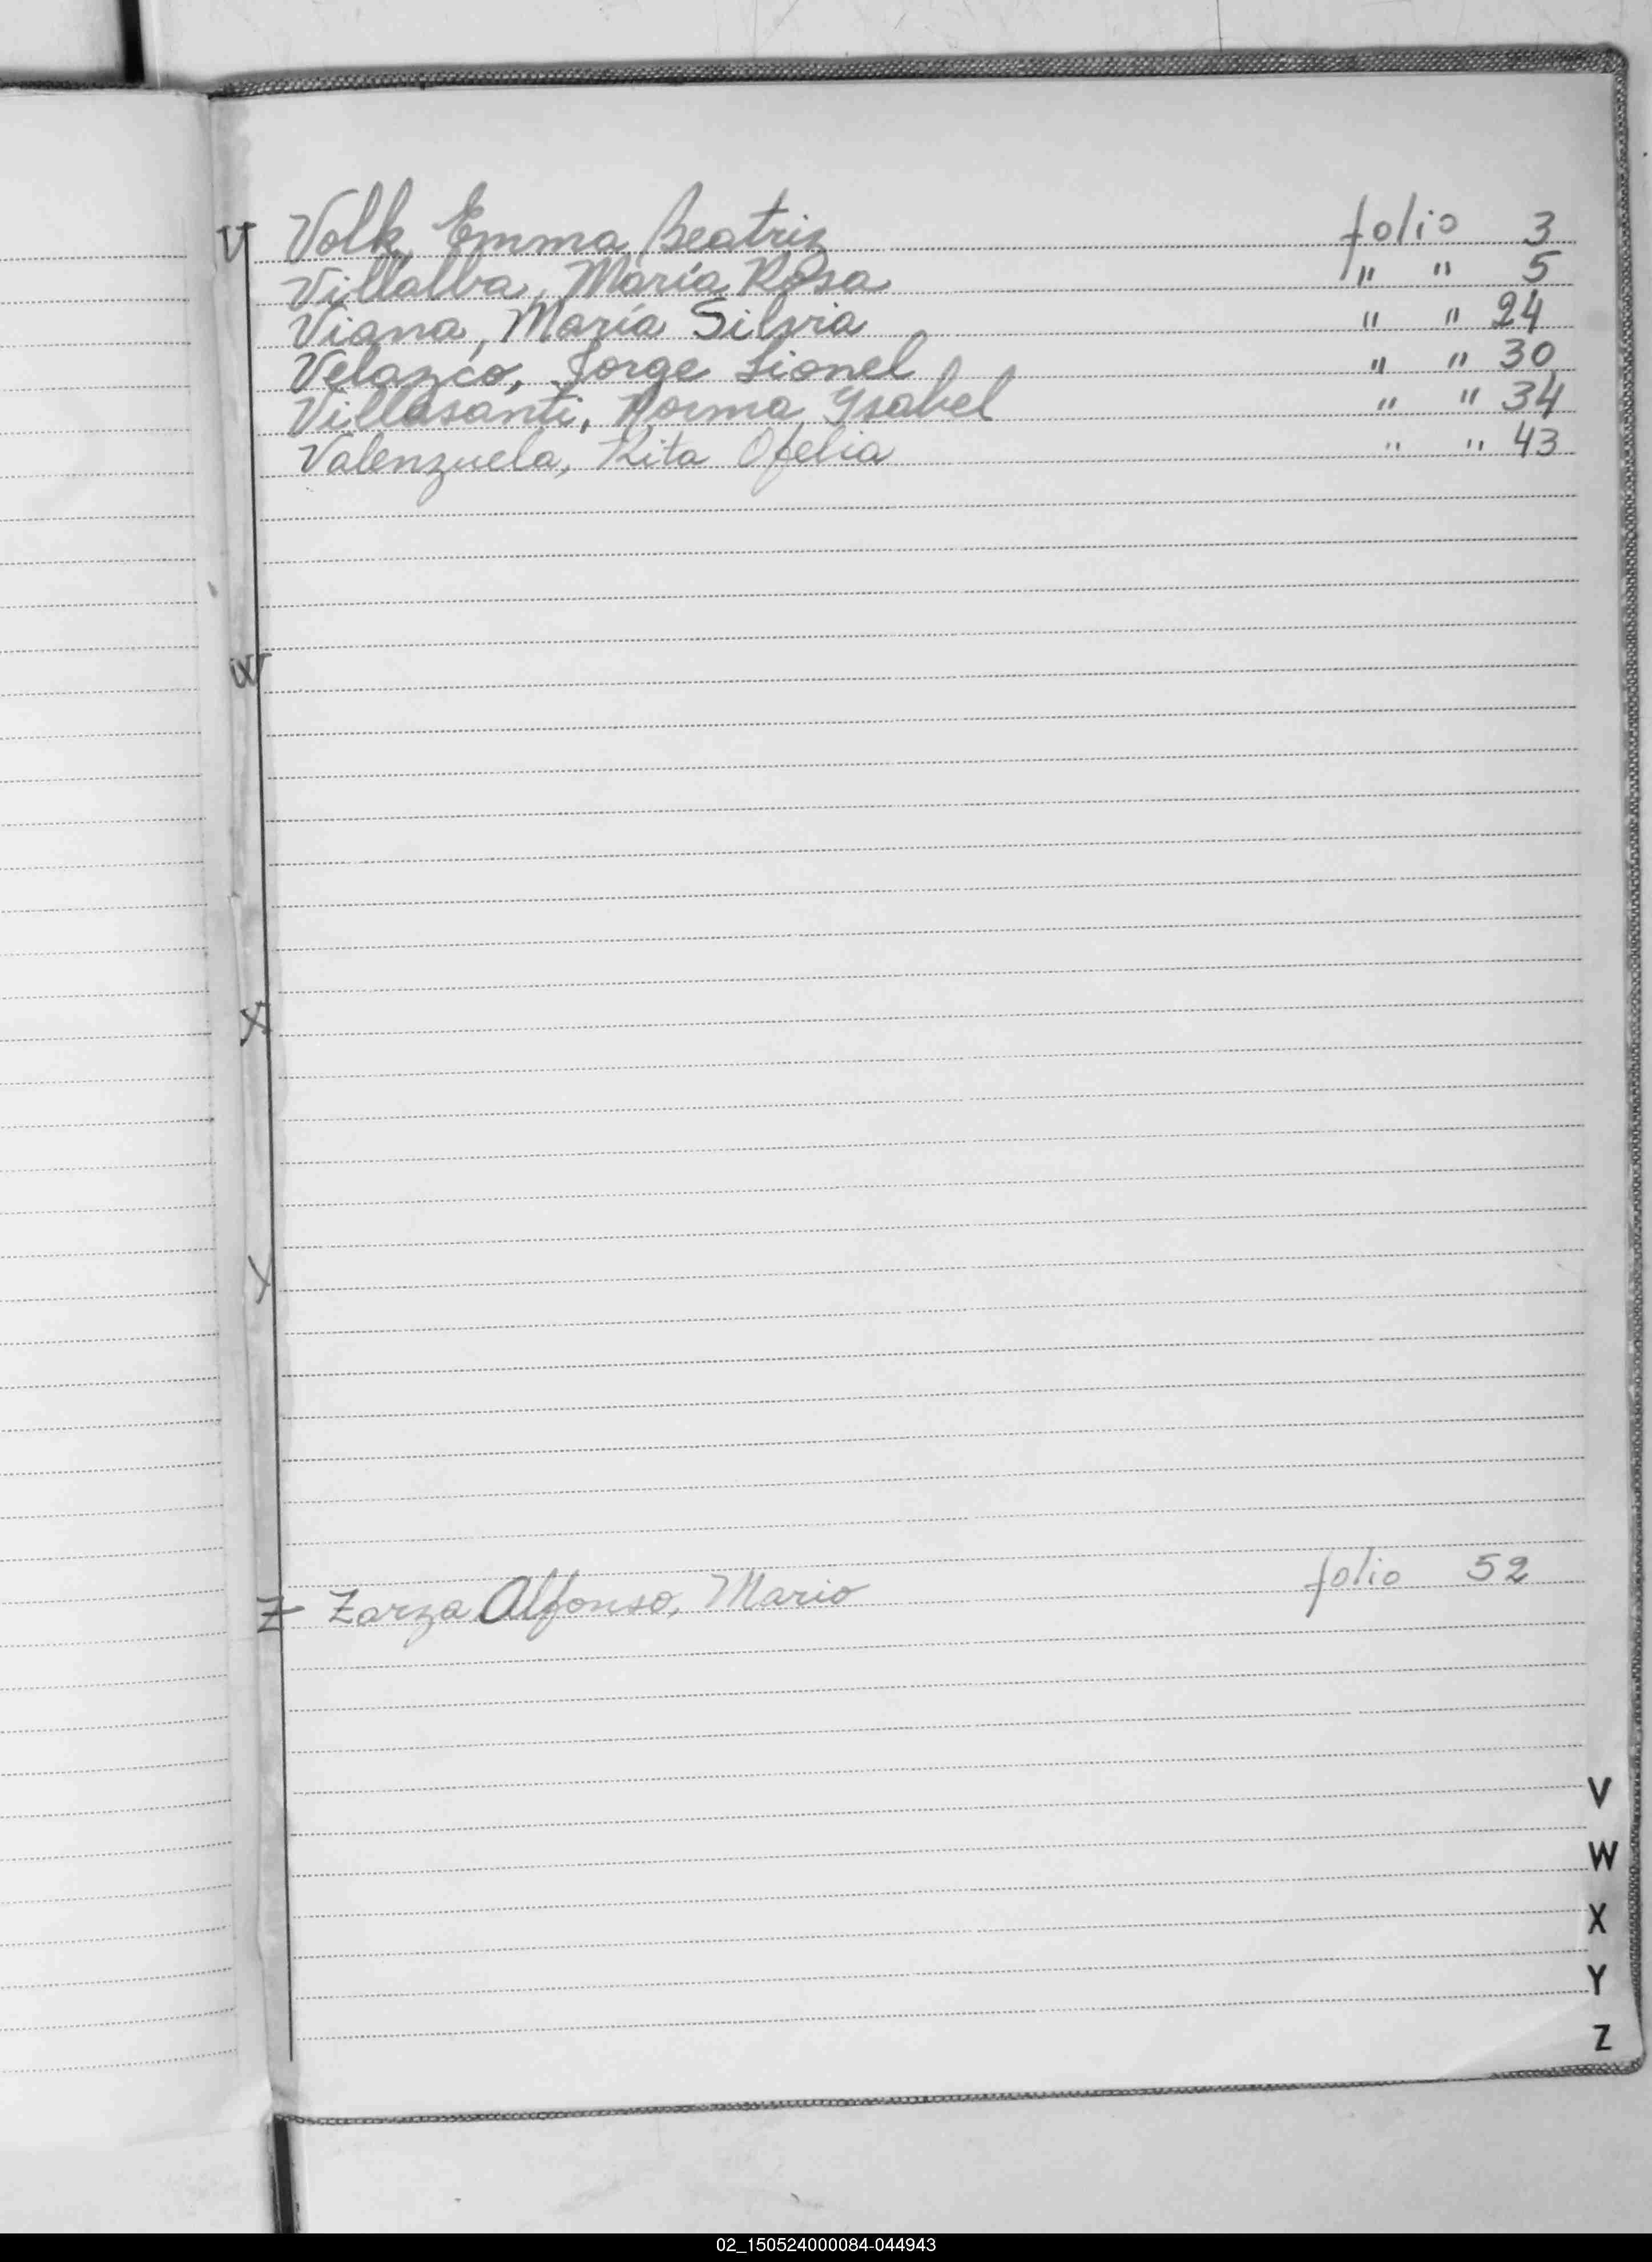 V Volk, Emma Beatriz folio 3
Villalba, María Rosa " " 5
Viana, María Silvia " " 24
Velazco, Jorge Lionel " " 30
Villasanti, Norma Ysabel " " 34
Valenzuela, Rita Ofelia " " 43
W
X
Y
Z Zarza Alfonso, Mario folio 52
V
W
X
Y
Z
02_150524000084-044943